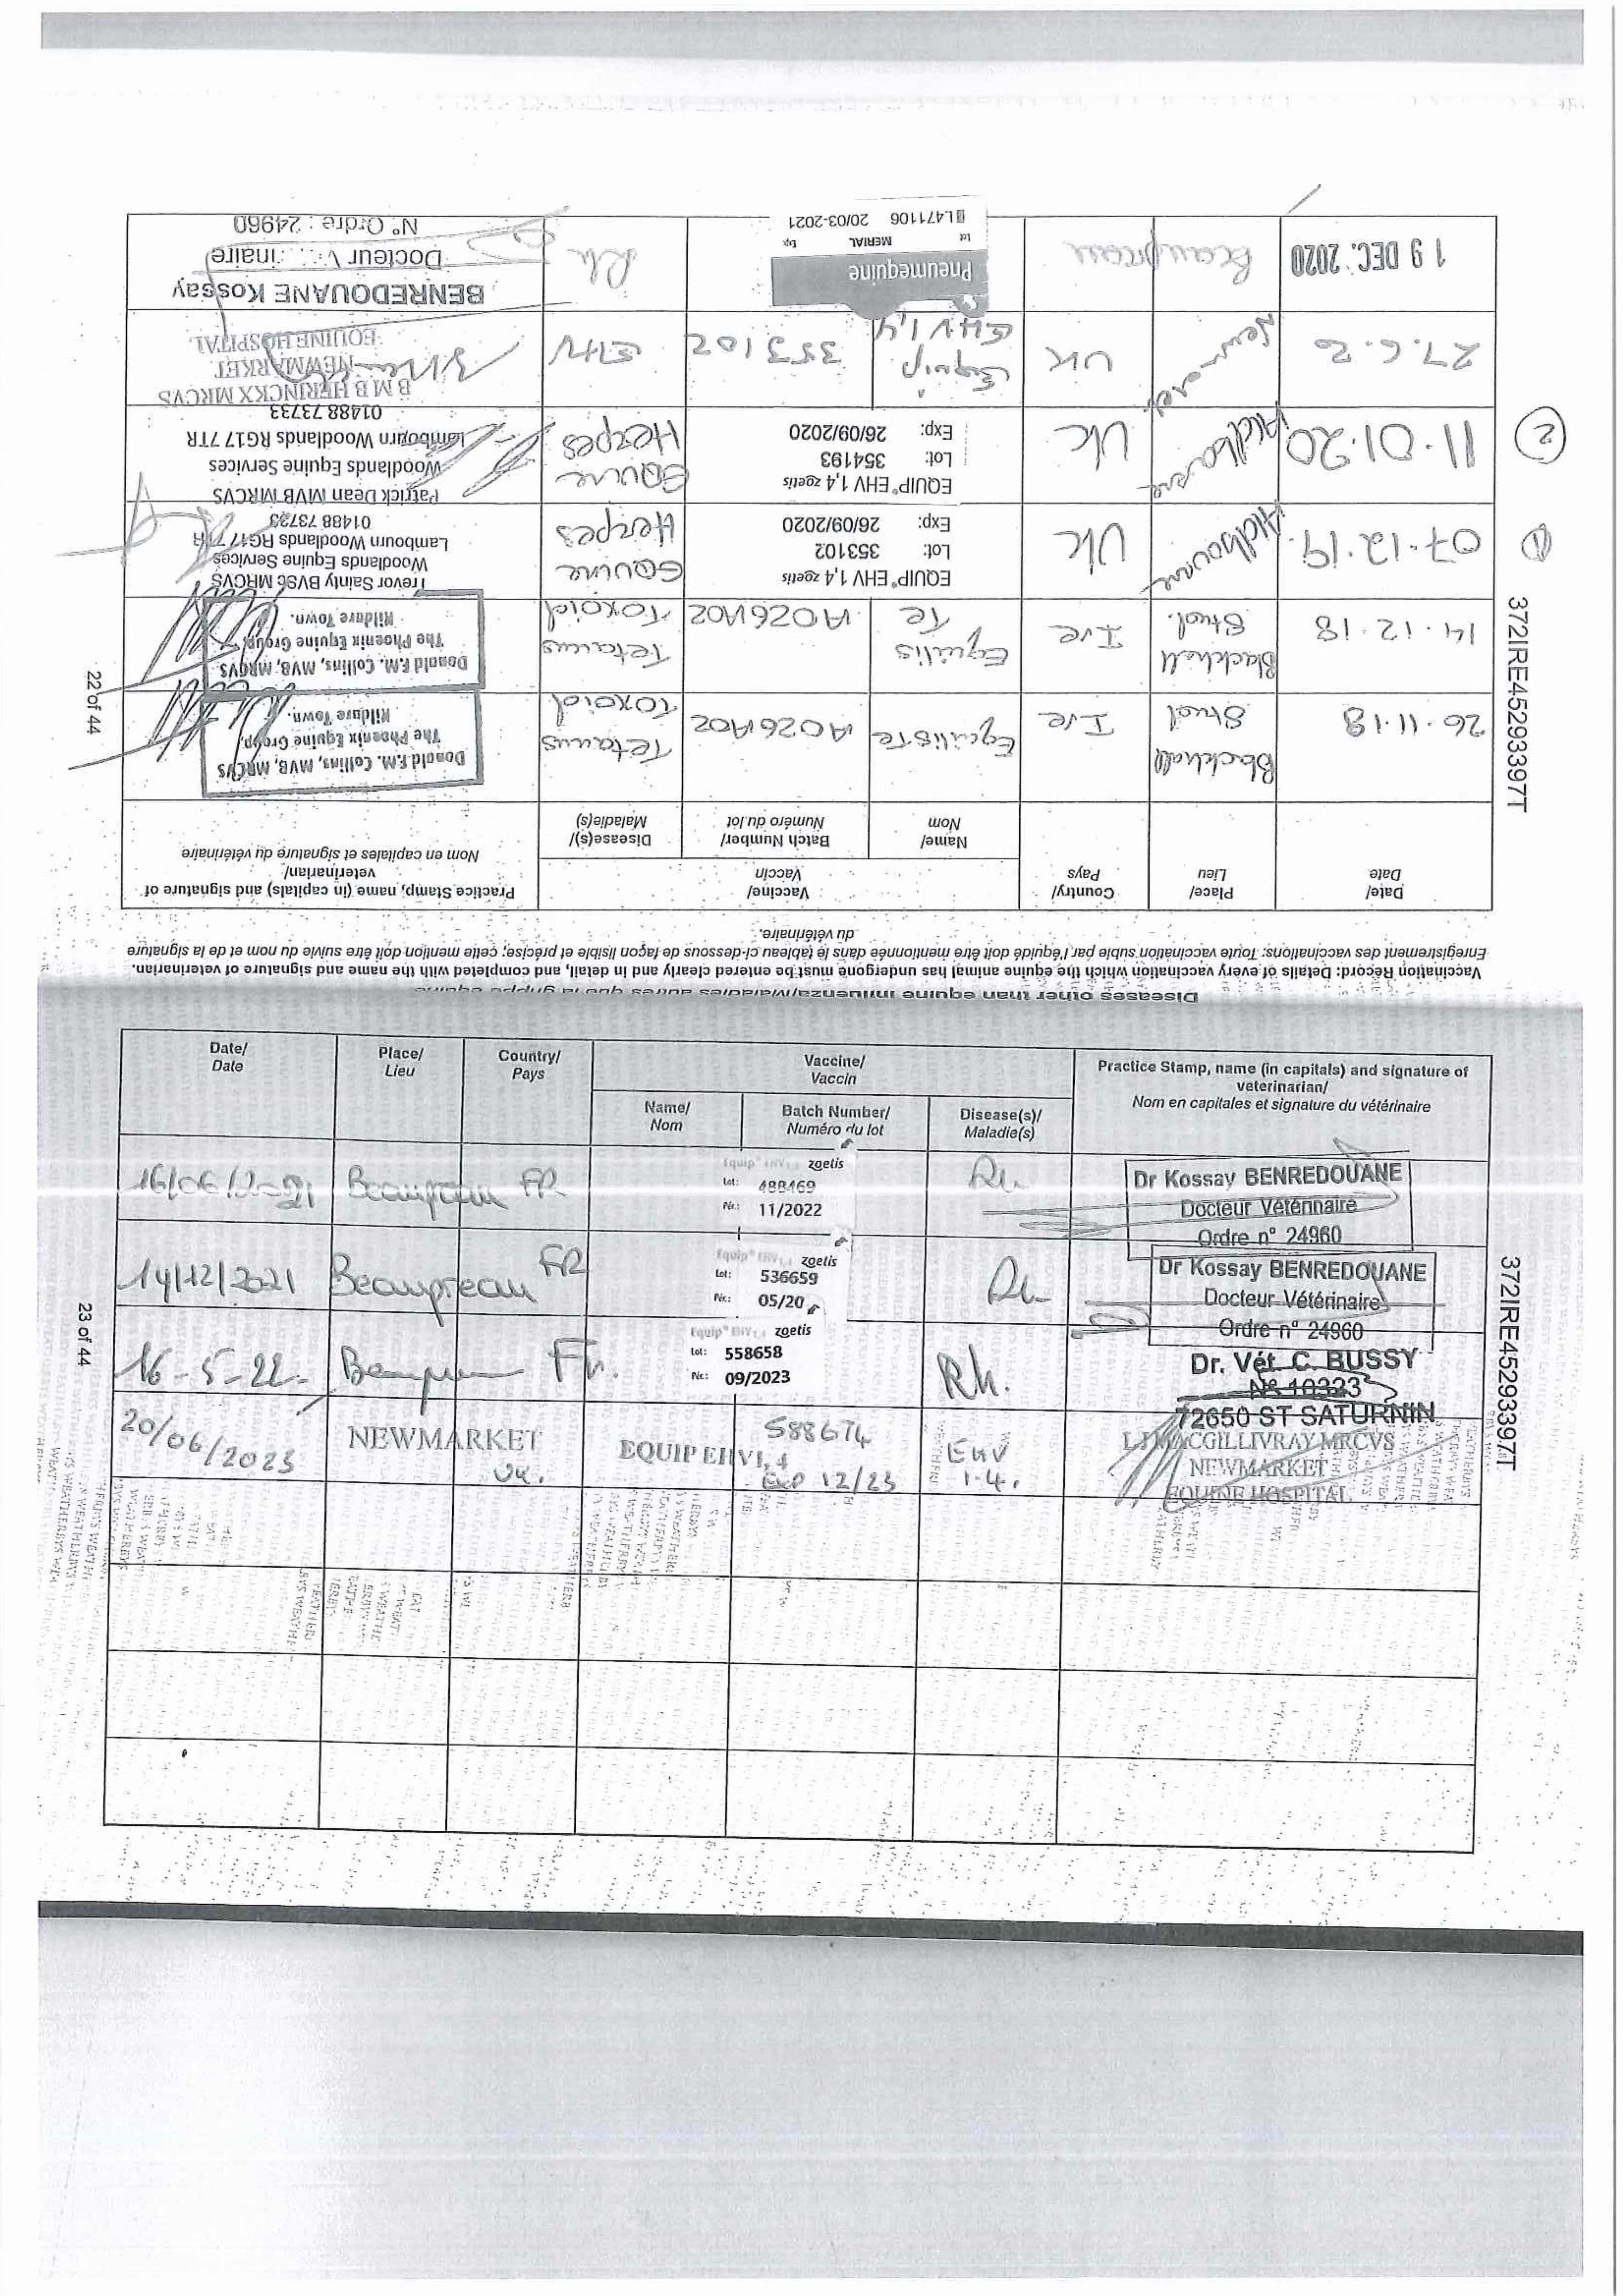 Diseases other than equine influenza/Maladies autres que la grippe équine
Vaccination Record: Details of every vaccination which the equine animal has undergone must be entered clearly and in detail, and completed with the name and signature of veterinarian.
Enregistrement des vaccinations: Toute vaccination subie par l'équidé doit être mentionnée dans le tableau ci-dessous de façon lisible et précise; cette mention doit être suivie du nom et de la signature
du vétérinaire.
Date/
Date
Place/
Lieu
Country/
Pays
Vaccine/
Vaccin
Name/
Nom
Batch Number/
Numéro du lot
Disease(s)/
Maladie(s)
Practice Stamp, name (in capitals) and signature of
veterinarian/
Nom en capitales et signature du vétérinaire
26.11.18
Blackhall
Stud
Ire
Equilis Te
A026A02
Tetanus
Toxoid
Donald F.M. Collins, MVB, MRCVS
The Phoenix Equine Group,
Kildare Town.
14.12.18
Blackhall
Stud.
Ire
Equilis
Te
A026A02
Tetanus
Toxoid
Donald F.M. Collins, MVB, MRCVS
The Phoenix Equine Group,
Kildare Town.
1
07.12.19.
Aldbourne
UK
EQUIP® EHV 1,4 zoetis
Lot: 353102
Exp: 26/09/2020
Equine
Herpes
Trevor Sainty BVSc MRCVS
Woodlands Equine Services
Lambourn Woodlands RG17 7TR
01488 73733
2
11.01.20
Aldbourne
UK
EQUIP® EHV 1,4 zoetis
Lot: 354193
Exp: 26/09/2020
Equine
Herpes
Patrick Dean MVB MRCVS
Woodlands Equine Services
Lambourn Woodlands RG17 7TR
01488 73733
27.6.20
UK
Equip
EHV 1,4
353102
EHV
B M B HERINCKX MRCVS
NEWMARKET
EQUINE HOSPITAL
19 DEC. 2020
Beaupreau
Pneumequine
Lot MERIAL Exp
L471106 20/03-2021
Rh
BENREDOUANE Kossay
Docteur
N° Ordre : 24960
372IRE45293397T
22 of 44
Date/
Date
Place/
Lieu
Country/
Pays
Vaccine/
Vaccin
Name/
Nom
Batch Number/
Numéro du lot
Disease(s)/
Maladie(s)
Practice Stamp, name (in capitals) and signature of
veterinarian/
Nom en capitales et signature du vétérinaire
16/06/2021
Beaupreau
FR
Equip® EHV 1,4 zoetis
Lot: 488469
Per.: 11/2022
Rh
Dr Kossay BENREDOUANE
Docteur Vétérinaire
Ordre n° 24960
14/12/2021
Beaupreau
FR
Equip® EHV 1,4 zoetis
Lot: 536659
Per.: 05/20
Rh
Dr Kossay BENREDOUANE
Docteur Vétérinaire
Ordre n° 24960
16-5-22.
Beaupreau
Fr.
Equip® EHV 1,4 zoetis
Lot: 558658
Per.: 09/2023
Rh.
Dr. Vét. C. BUSSY
N° 10323
72650 ST SATURNIN
20/06/2023
NEWMARKET
UK.
EQUIP EHV1,4
588674
Exp 12/23
EHV
1.4.
L J MACGILLIVRAY MRCVS
NEWMARKET
EQUINE HOSPITAL
372IRE45293397T
23 of 44